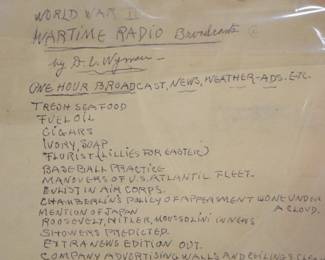 WORLD WAR II
WARTIME RADIO Broadcasts
by D. L. Wyman
ONE HOUR BROADCAST, NEWS, WEATHER-ADS. ETC.
TRESH SEAFOOD
FUEL OIL
CIGARS
IVORY SOAP
FLORIST (LILLIES FOR EASTER)
BASEBALL PRACTICE
MANOUERS OF U.S. ATLANTIC FLEET.
ENLIST IN AIR CORPS.
CHAMBERLIN'S POLICY OF APPERSMENT WONE UNDER
MENTION OF JAPAN A CLOUD.
ROOSEVELT, HITLER, MOUSSOLINI IN NEWS
SHOWERS PREDICTED.
EXTRA NEWS EDITION OUT.
COMPANY ADVERTISING WALLS AND CEILINGS